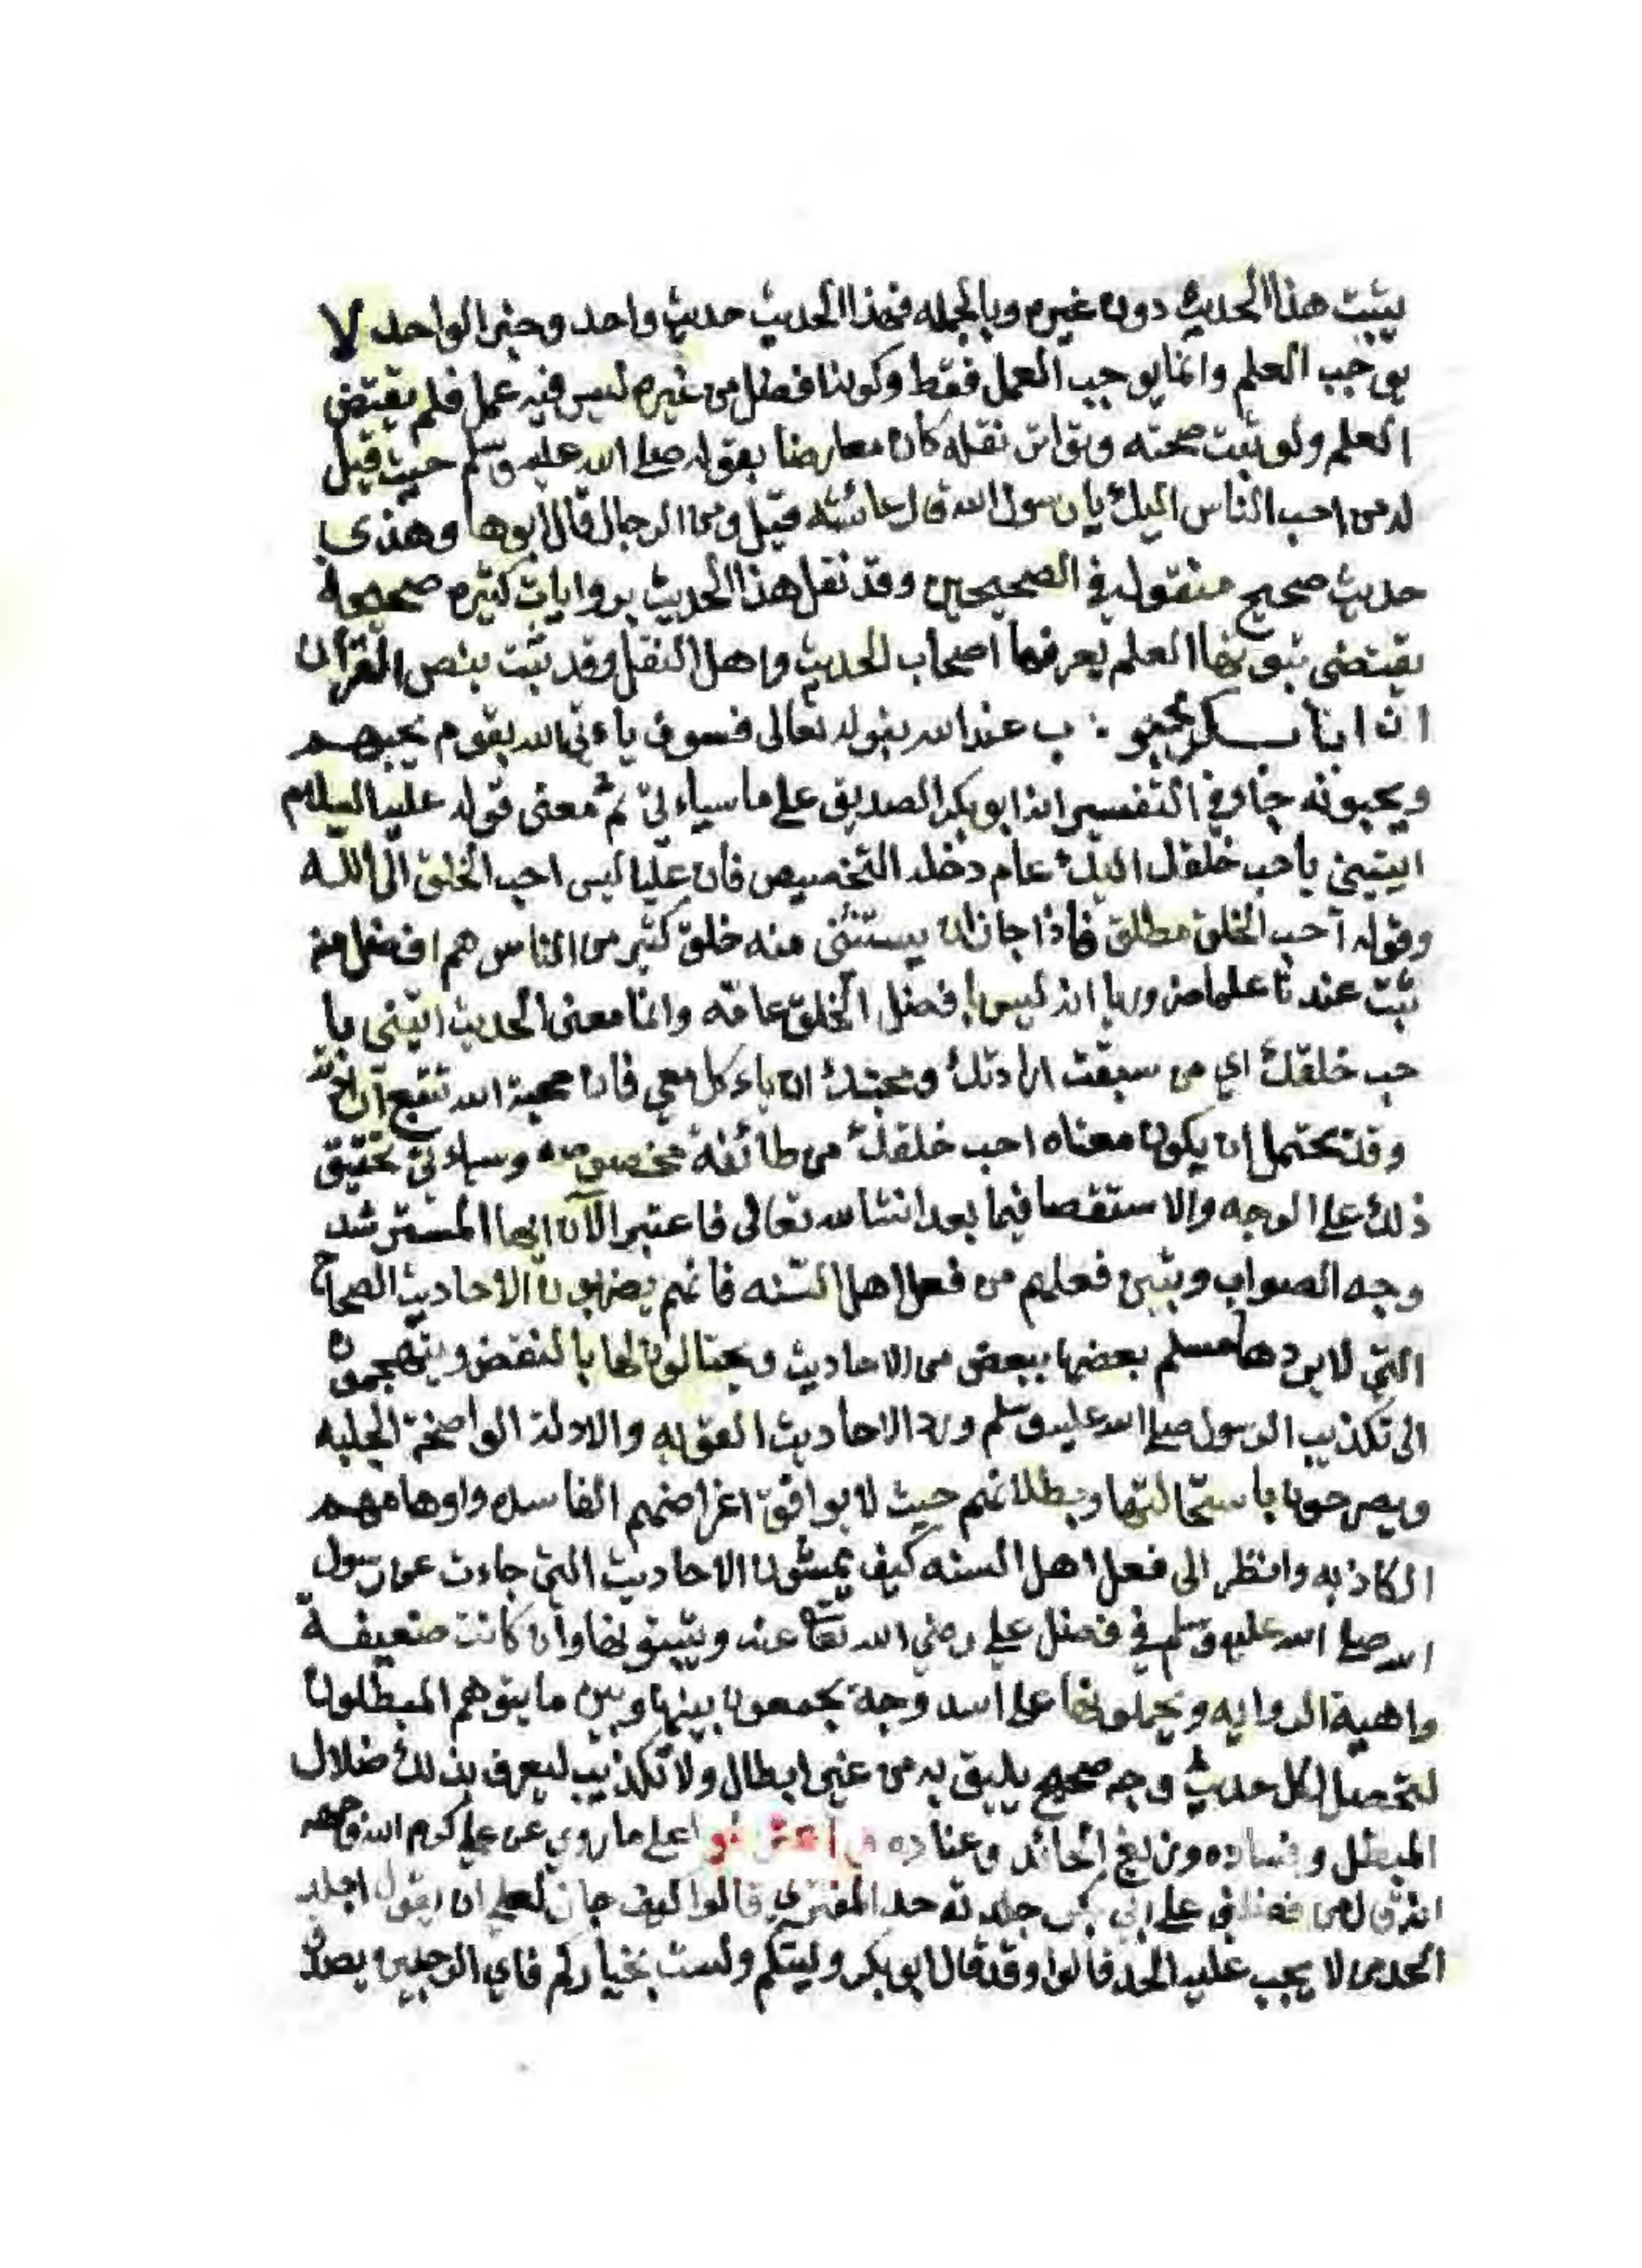 يثبت هذا الحديث دون غيره وبالجمله فهذا الحديث حديث واحد وخبر الواحد لا
يوجب العلم وانما يوجب العمل فقط وكونه افضل من غيره ليس فيه عمل فلم يقتض
العلم ولو ثبت صحته وتواتر نقله كان معارضا بقوله صلى الله عليه وسلم حيث قيل
له من احب الناس اليك يا رسول الله قال عائشه قيل ومن الرجال قال ابوها وهذى
حديث صحيح منقول في الصحيحين وقد نقل هذا الحديث بروايات كثيره صحيحه
يقتضي ثبوتها العلم يعرفها اصحاب الحديث واهل النقل وقد ثبت بنص القرآن
ان ابا بكر محبو ب عند الله بقوله تعالى فسوف ياءتي الله بقوم يحبهم
ويحبونه جاء في التفسير انه ابو بكر الصديق على ما سياءتي ثم معنى قوله عليه السلام
ايتيني باحب خلقك اليك عام دخله التخصيص فان عليا ليس احب الخلق الى الله
وقوله احب الخلق مطلق فاذا جاز ان يستثنى منه خلق كثير من الناس هم افضل منه
ثبت عندنا علما ضروريا انه ليس بافضل الخلق عامّه وانما معنى الحديث ايتيني با
حب خلقك اي من سبقت ارادتك ومحبتك ان ياءكل معي فان محبة الله تتبع ارادته
وقد يحتمل ان يكون معناه احب خلقك من طائفة مخصوصه وسياءتي تحقيق
ذلك على الوجه والاستقصا فيما بعد انشا الله تعالى فاعتبر الآن ايها المسترشد
وجه الصواب وتبين فعلهم من فعل اهل السّنه فانهم يضربون الاحاديث الصحاح
التي لا يردها مسلم بعضها ببعض من الاحاديث ويحتالون لها بالنقض ويتهجمون
الى تكذيب الرسول صلى الله عليه وسلم ورد الاحاديث القويه والادلة الواضحة الجليه
ويصرحون باستحالتها وبطلانهم حيث لا يوافق اغراضهم الفاسده واوهامهم
الكاذبه وانظر الى فعل اهل السنه كيف يمشون الاحاديث التي جاءت عن رسول
الله صلى الله عليه وسلم في فضل علي رضي الله تعا عنه ويثبتونها وان كانت ضعيفة
واهية الروايه ويحملونها على اسد وجه يجمعون بينها وبين ما يتوهم المبطلون
لتحصل لكل حديث وجه صحيح يليق به من غير ابطال ولا تكذيب ليعرف بذلك ضلال
المبطل وفساده وزيغ الحائد وعناده واعترضو اعلى ما روي عن علي كرم الله وجهه
انه قال من فضلني على ابي بكر جلدته حد المفتري قالوا كيف جاز لعلي ان يقول اجلد
الحد من لا يجب عليه الحد قالوا وقد قال ابو بكر وليتكم ولست بخياركم فاي الرجلين يصدق